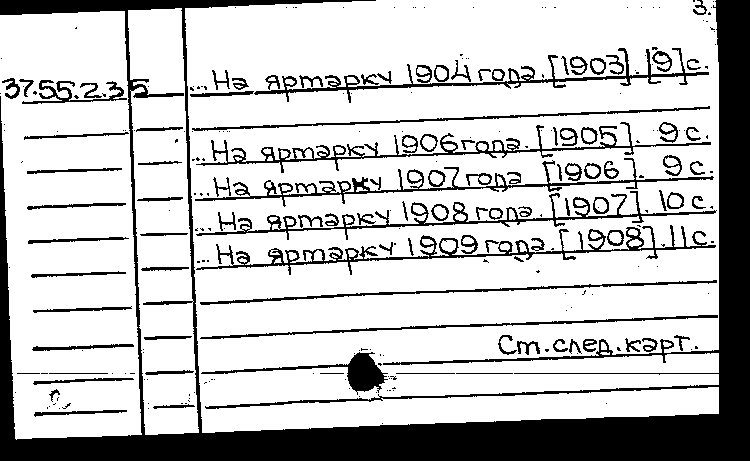 3.
37.55.2.35 ...На яртарку 1904 года. [1903]. [9] с.
...На яртарку 1906 года. [1905]. 9 с.
...На яртарку 1907 года [1906]. 9 с.
...На яртарку 1908 года. [1907]. 10 с.
...На яртарку 1909 года. [1908]. 11 с.
Ст. след. карт.